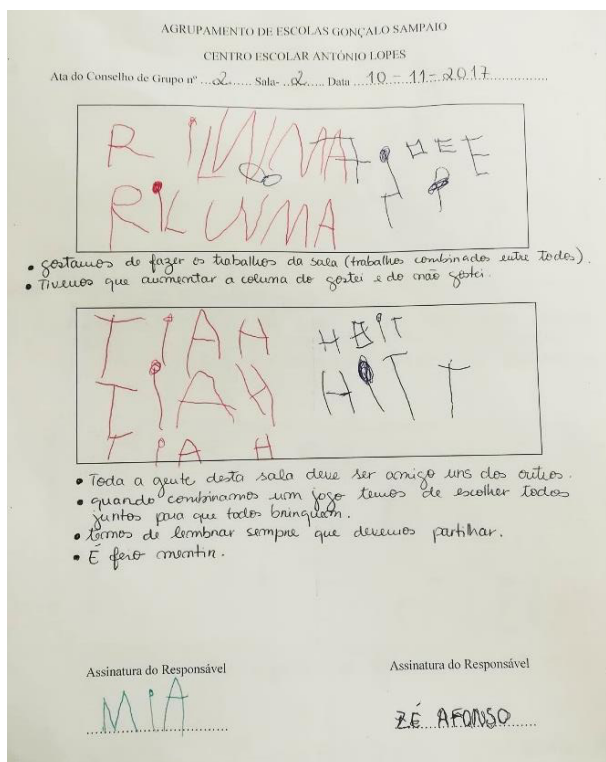 AGRUPAMENTO DE ESCOLAS GONÇALO SAMPAIO
CENTRO ESCOLAR ANTÓNIO LOPES
Ata do Conselho de Grupo nº ...2...... Sala- ..2..... Data ....10-11-2017...............
RILUNMA
• gostamos de fazer os trabalhos da sala (trabalhos combinados entre todos).
• Tivemos que aumentar a coluna do gostei e do não gostei.
TIAH HOIT
IIAH HITT
TIA H
• Toda a gente desta sala deve ser amigo uns dos outros.
• quando combinamos um jogo temos de escolher todos
juntos para que todos brinquem.
• temos de lembrar sempre que devemos partilhar.
• É feio mentir.
Assinatura do Responsável Assinatura do Responsável
MIA ZÉ AFONSO